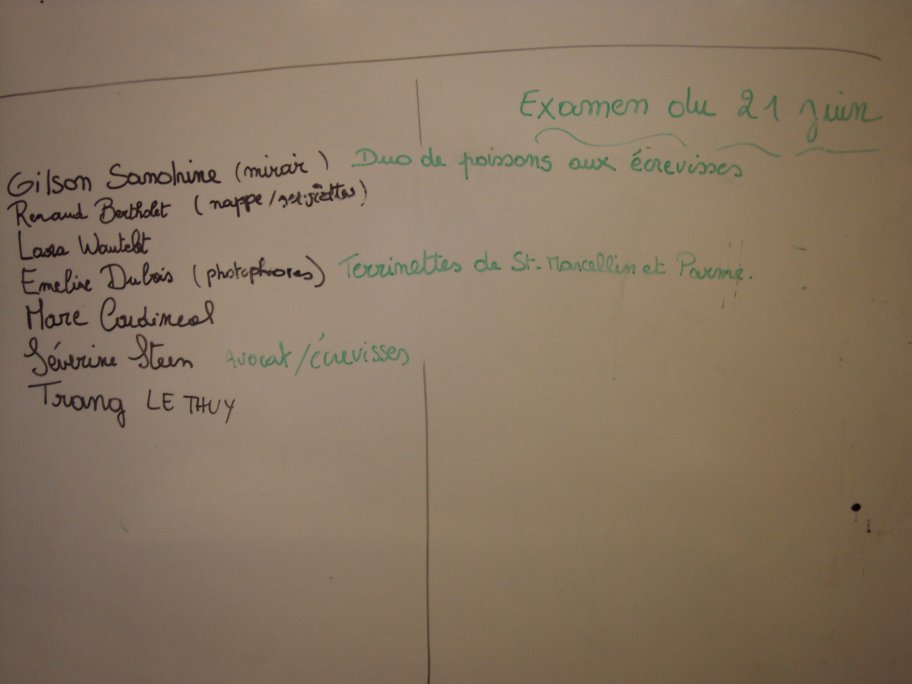 Examen du 21 juin
Gilson Sandrine (miroir) Duo de poissons aux écrevisses
Renaud Bertholet (nappe/serviettes)
Laura Wautelet
Emeline Dubois (photophores) Terrinettes de St. Marcellin et Parme.
Marc Cardineal
Séverine Steen Avocat/écrevisses
Trang LE THUY